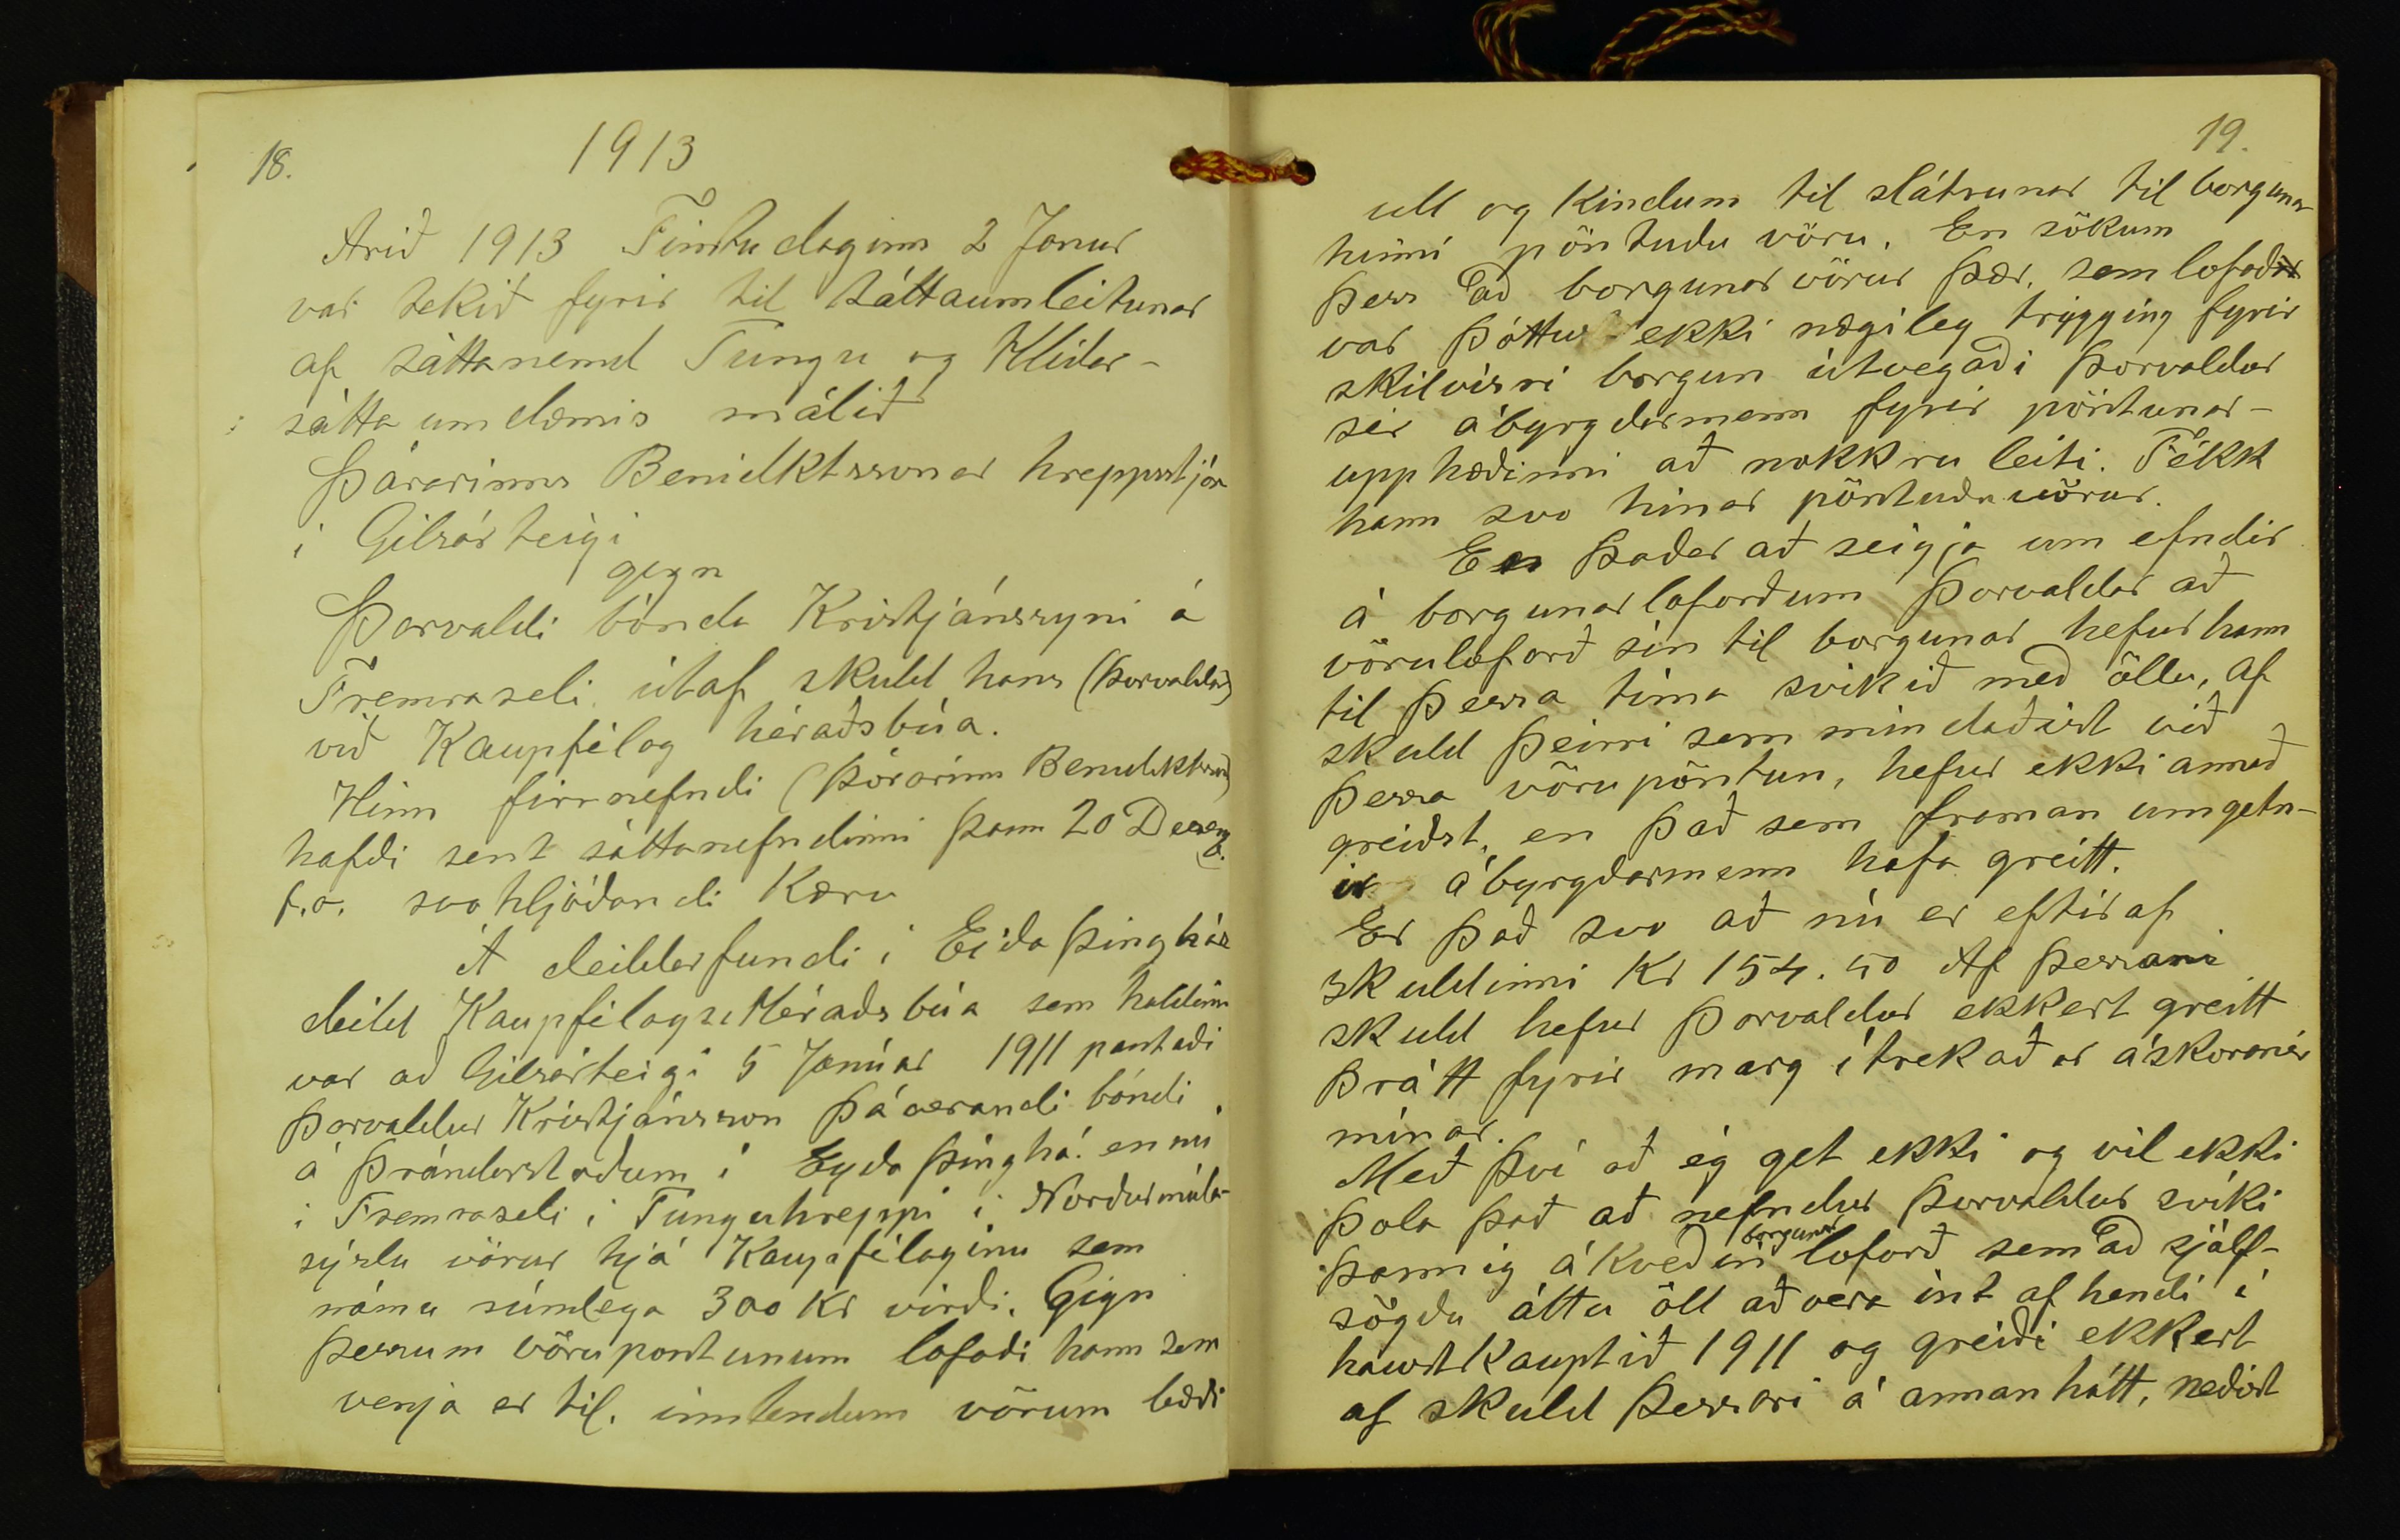 18.
1913
Árið 1913 Fimtudaginn 2 Janúar
var tekið fyrir til sáttaumleitunar
af sáttanemd Tungu og Hlíðar-
sáttaumdæmis málið
Þórarinns Beniditktssonar hreppstjóra
í Gilsárteigi
gegn
Þorvaldi bónda Kristjánssyni á
Fremraseli útaf skuld hans (Þorvaldar)
við Kaupfélag héraðsbúa.
Hinn firrnefndi (Þórarinn Benediktsson)
hafði sent sáttanefndinni þann 20 Desemb.
f.á. svohljóðandi Kæru
Á deildarfundi í Eiðaþinghár
deild Kaupfélags Héraðsbúa sem haldinn
var að Gilsárteigi 5 Janúar 1911 pantaði
Þorvaldur Kristjánsson þáverandi bóndi
á Þrándarstöðum í Eyðaþinghá en nú
í Fremraseli í Tunguhreppi í Norðurmúla-
sýslu vörur hjá Kaupfélaginu sem
námu rúmlega 300 Kr virði. Gign
þessum vörupöntunum lofaði hann sem
venja er til. innlendum vörum bæði
19.
ull og Kindum til slátrunar til borgunar
hinni pöntuðu vöru. En sökum
þess að borgunar vörur þær, sem lofað
var þóttu ekki nægileg trygging fyrir
skilvísri borgun útvegaði Þorvaldur
sér ábyrgðarmenn fyrir pöntunar-
upphæðinni að nokkru leiti. Fékk
hann svo hinar pöntuðu vörur.
En það er að seigja um efndir
á borgunarloforðum Þorvaldar að
vöruloforð sín til borgunar hefur hann
til þessa tíma svikið með öllu, af
skuld þeirri sem mindaðist við
þessa vörupöntun, hefur ekki annað
greiðst, en það sem framan umgetn-
ir ábyrgðarmenn hafa greitt.
Er það svo að nú er eftir af
skuldinni Kr 154.50 Af þessari
skuld hefur Þorvaldur ekkert greitt
Þrátt fyrir marg ítrekaðar áskoranir
mínar.
Með því að ég get ekki og vil ekki
þola það að nefndur Þorvaldur svíki
borgunar
þannig ákveðin loforð sem að sjálf-
sögðu áttu öll að vera int af hendi í
haustkauptíð 1911 og greiði ekkert
af skuld þessari á annan hátt, neðist